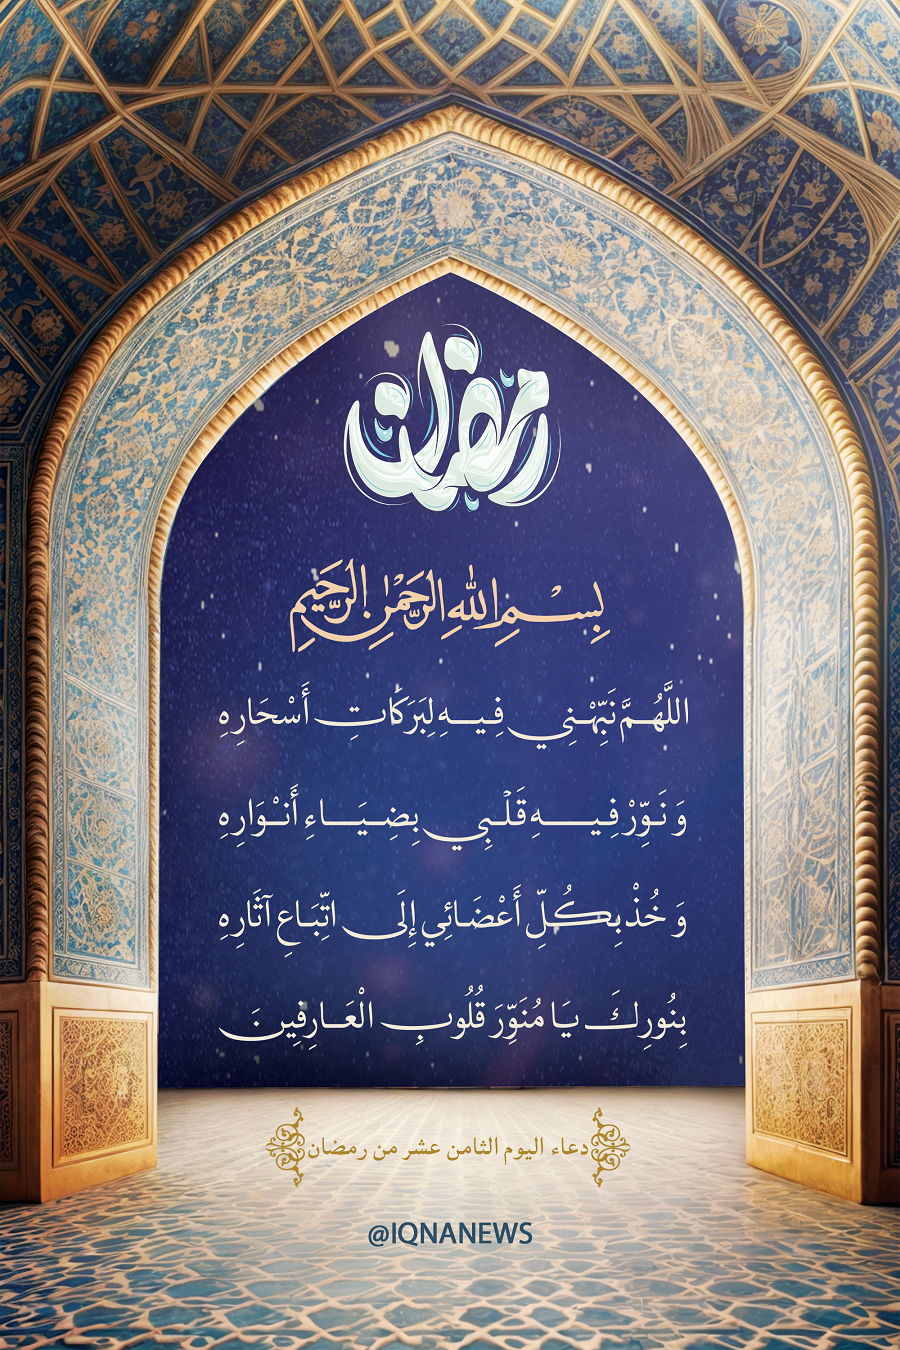 رمضان
بِسْمِ اللهِ الرَّحْمٰنِ الرَّحِيمِ
اللَّهُمَّ نَبِّهْنِي فِيهِ لِبَرَكَاتِ أَسْحَارِهِ
وَ نَوِّرْ فِيهِ قَلْبِي بِضِيَاءِ أَنْوَارِهِ
وَ خُذْ بِكُلِّ أَعْضَائِي إِلَى اتِّبَاعِ آثَارِهِ
بِنُورِكَ يَا مُنَوِّرَ قُلُوبِ الْعَارِفِينَ
دعاء اليوم الثامن عشر من رمضان
@IQNANEWS